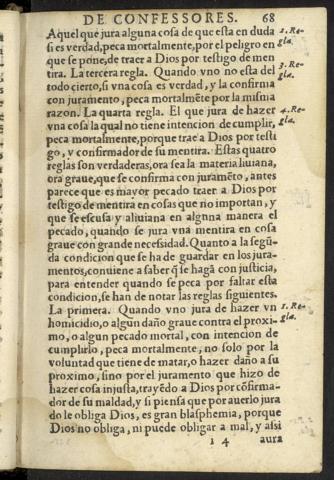 DE CONFESSORES. 68
Aquel que jura alguna cosa de que esta en duda
si es verdad, peca mortalmente, por el peligro en
que se pone, de traer a Dios por testigo de men
tira. La tercera regla. Quando vno no esta del
todo cierto, si vna cosa es verdad, y la confirma
con juramento, peca mortalmẽte por la misma
razon. La quarta regla. El que jura de hazer
vna cosa la qual no tiene intencion de cumplir,
peca mortalmente, porque trae a Dios por testi
go, y confirmador de su mentira. Estas quatro
reglas son verdaderas, ora sea la materia liuiana,
ora graue, que se confirma con juramẽto, antes
parece que es mayor pecado traer a Dios por
testigo de mentira en cosas que no importan, y
que se escusa y aliuiana en algnna manera el
pecado, quando se jura vna mentira en cosa
graue con grande necessidad. Quanto a la segũ
da condicion que se ha de guardar en los jura-
mentos, conuiene a saber q̃ se hagã con justicia,
para entender quando se peca por faltar esta
condicion, se han de notar las reglas siguientes.
La primera. Quando vno jura de hazer vn
homicidio, o algun daño graue contra el proxi-
mo, o algun pecado mortal, con intencion de
cumplirlo, peca mortalmente, no solo por la
voluntad que tiene de matar, o hazer daño a su
proximo, sino por el juramento que hizo de
hazer cosa injusta, trayẽdo a Dios por cõfirma-
dor de su maldad, y si piensa que por auerlo jura
do le obliga Dios, es gran blasphemia, porque
Dios no obliga, ni puede obligar a mal, y assi
i 4 aura
2. Re-
gla.
3. Re-
gla.
4. Re-
gla.
1. Re-
gla.